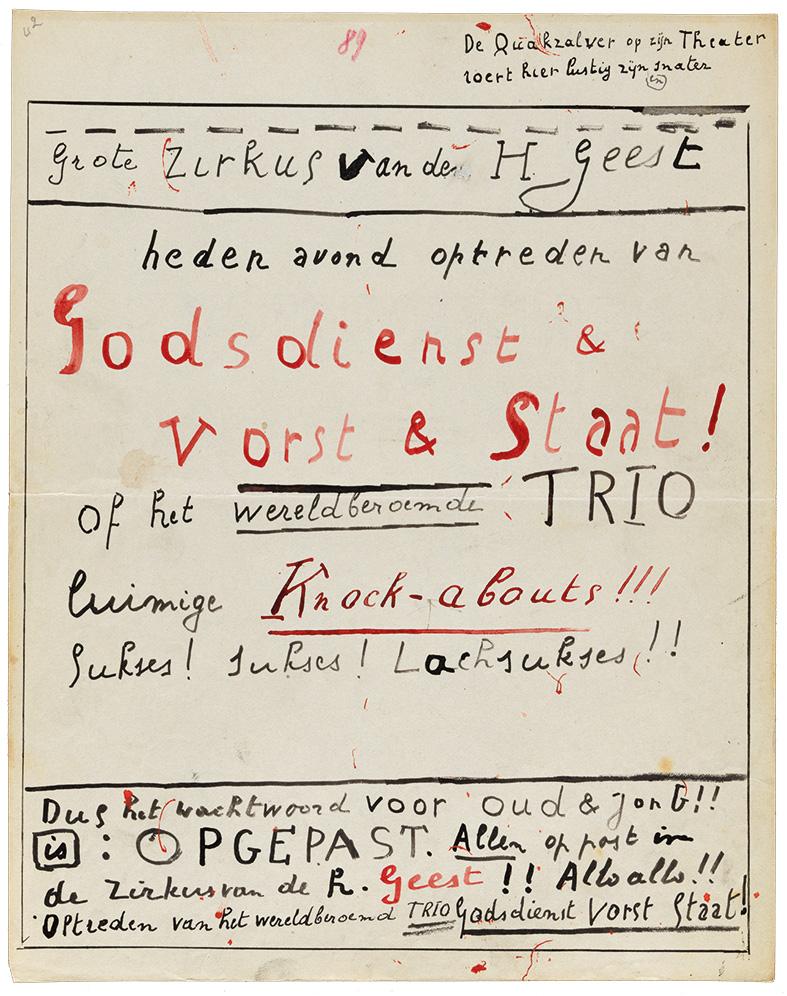 89
De Quakzalver op zijn Theater
roert hier lustig zijn snater
Grote Zirkus van den H Geest
heden avond optreden van
Godsdienst &
Vorst & Staat!
of het wereldberoemde TRIO
luimige Knock-abouts!!!
Sukses! Sukses! Lachsukses!!
Dus het wachtwoord voor oud & jonG!!
is: OPGEPAST. Allen op post in
de Zirkus van de h. Geest!! Allo allo!!
Optreden van het wereldberoemd TRIO Godsdienst Vorst Staat!